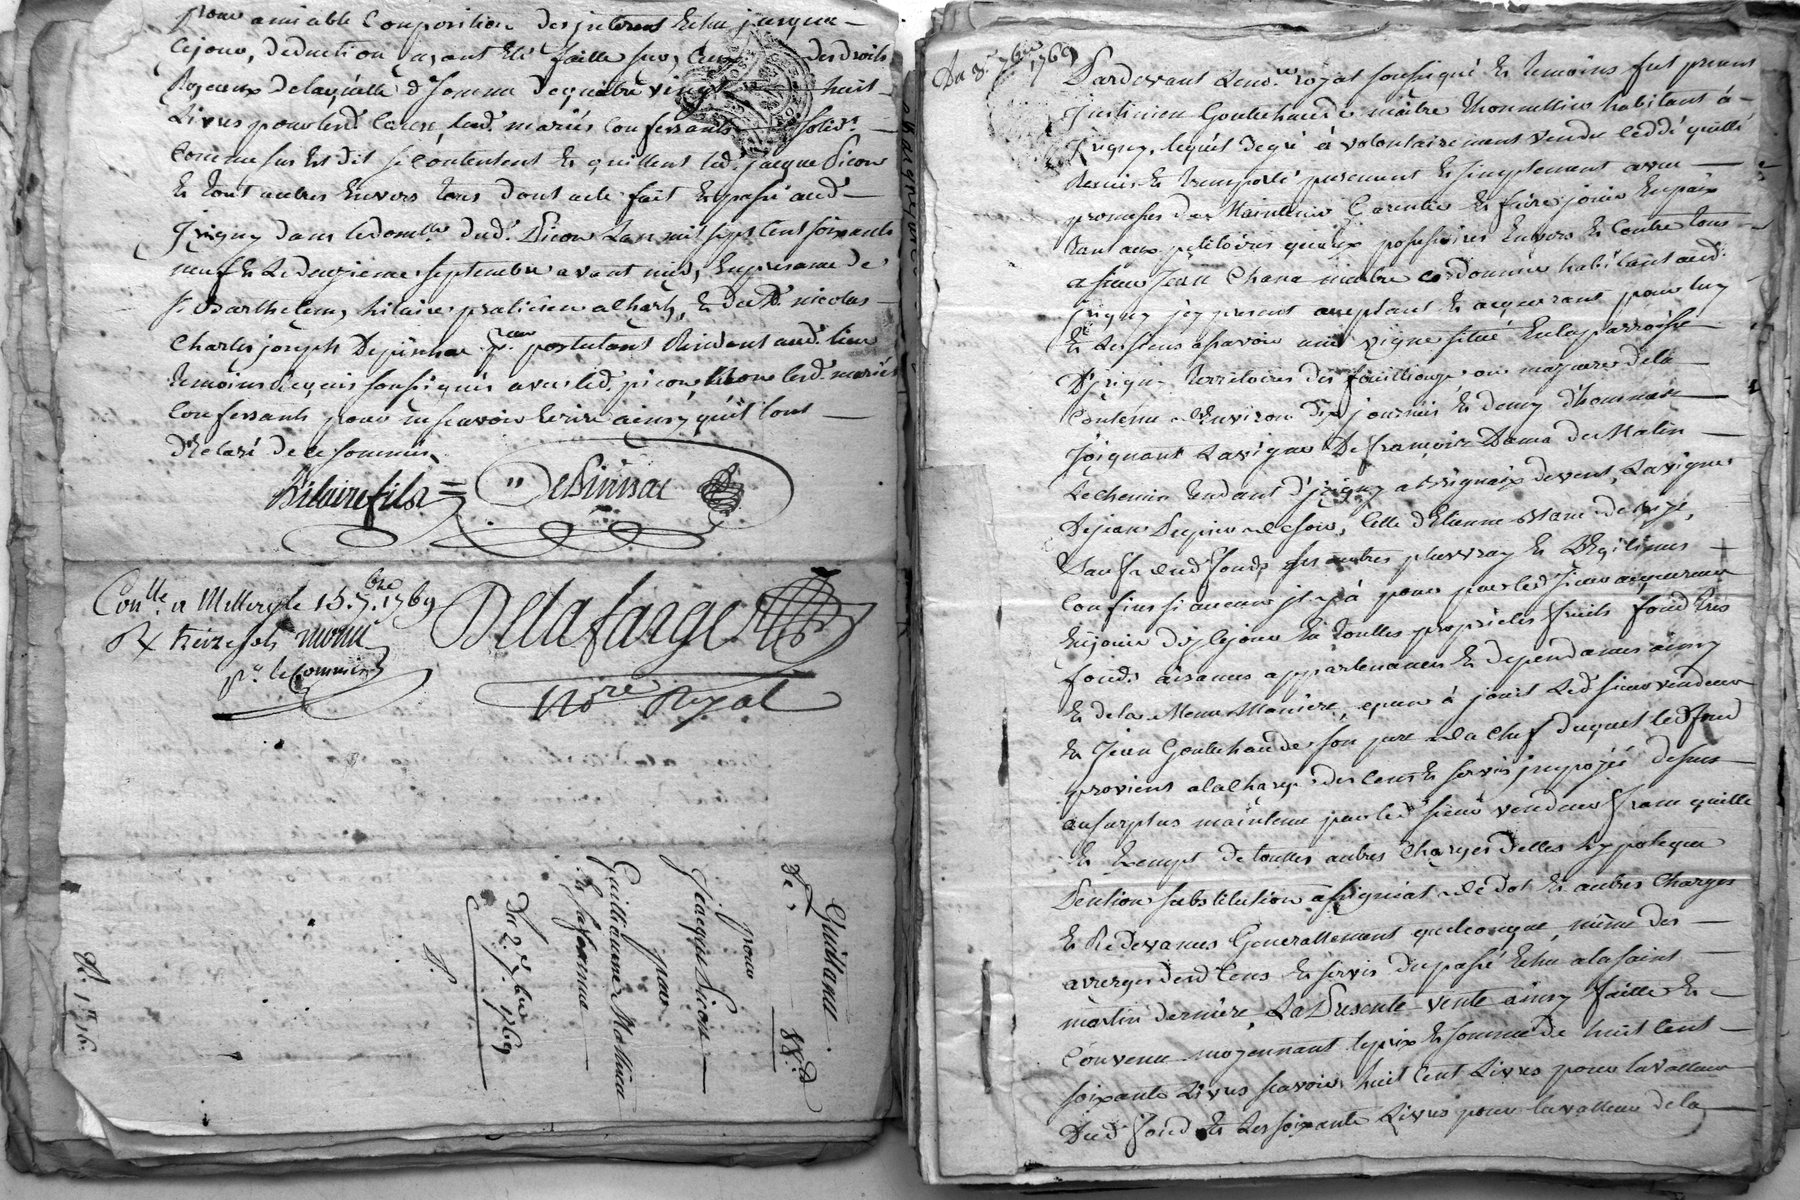 pour amiable Composition des interest Echu jusqua
Cejour, deduction ayant Eté faitte sur Ceux des droits
Royeaux delaquelle d. Somme de quatre vingt huit
Livres pour led. Cause, led. mariés Confessants solid.t
Comme sus Est dit se Contentent Et quittent led. jacque Picon
Et tout autres Envers tous dont acte fait Et passé aud.
jrigny dans ledomlle dud. Picon Lan mil sept Cent soixante
neuf Et Le deuzieme septembre avant midy, En presence de
sr Barthelemy hilaire praticien a Charly, Et de Me nicolas
Charles joseph Depinhac pcur postulant Residant aud. lieu
temoins requis soussignés avec led. picon Non lesd. mariés
Confessants pour ne scavoir Ecrire ainsy quils ont
declaré de ce sommés
hilaire fils
DePinhac
Conlle a Millery le 15. 7.bre 1769
Rx treize sols
pr. le Commis
Delafarge
Nore Royal
Quittance
De 88ld
pour
Jacque Picon
par
Guillaume
Et sa femme
Du 2.e 7bre 1769
Du 3.e 7bre 1769
Pardevant Leno.re royal soussigné Et temoins fut present
Justinien Goutechaude maître Thonnellier habitant à
jrigny, lequel de gré à volontairement vendu Ceddé quitté
Remis Et transporté purement Et simplement avec
promesses de Maintenir Garentir Et faire jouir En paix
tant aux petitoires quaux possessoires Envers Et Contre tous
a sieur Jean Chana maitre cordonnier habitant aud.
jrigny jcy present acceptant Et acquerant pour luy
Et Les siens asavoir une vigne situé En la parroisse
D'jrigny territoires des fouillouze ou mazures dela
Contenue Environ dix journés Et demy d'hommée
Joignant La vigne De françois Dama de Matin
Le chemin tendant d'jrigny a Brignaix de vent, La vigne
De jean Dupin de soir, Celle d'Etienne Blanc de bize,
Sauf aud. fonds ses autres plus vray Et Legitimes
Confins si aucuns jl y à pour par led. sieur acquereur
En jouir dez Cejour En touttes proprietés fruits fond tres
fonds aisances appartenances Et dependances ainsy
Et de la Meme Maniere, quen à jouit Led. sieur vendeur
Et Jean Goutechaude son pere de la Chef duquel led. fond
provient a la Charge des Cens Et servis jmposés dessus
au surplus maintenu par led. sieur vendeur franc quitte
Et Exempt de touttes autres Charges dettes hypoteque
Pention substitution assignat de dot Et autres Charges
Et Redevances Generallement quelconque, même des
arrerages desd. Cens Et servis du passé Echu a la saint
martin derniere, La Presente vente ainsy faitte Et
Convenu moyennant le prix Et somme de huit Cent
soixante Livres scavoir huit Cent Livres pour la valleur
Dud. fond Et Les soixante Livres pour la valleur de la